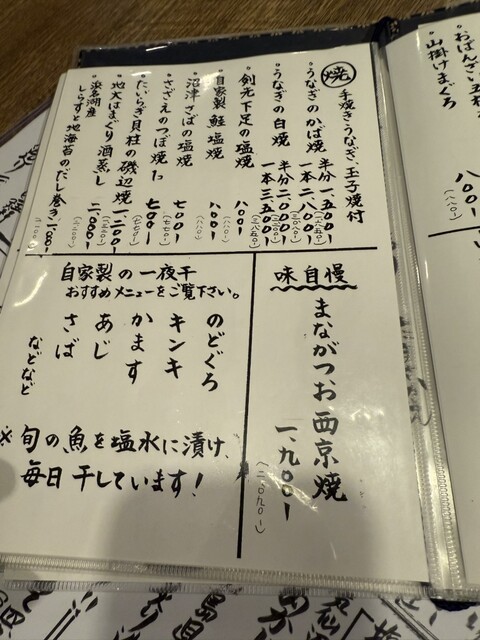 おばんざい五種
山掛けまぐろ
八〇〇
(八八〇)
焼 手焼きうなぎ、玉子焼付
うなぎのかば焼 半分 一、五〇〇 (一六五〇)
一本 二、八〇〇 (三〇八〇)
うなぎの白焼 半分 二、〇〇〇 (二二〇〇)
一本 三、五〇〇 (三八五〇)
剣先下足の塩焼 八〇〇 (八八〇)
自家製 鮭塩焼 八〇〇 (八八〇)
沼津さばの塩焼 七〇〇 (七七〇)
さざえのつぼ焼 1コ 七〇〇 (七七〇)
たいらぎ貝柱の磯辺焼 一、二〇〇
地大はまぐり酒蒸し 二、〇〇〇 (二二〇〇)
浜名湖産
しらすと地海苔のだし巻き 一、〇〇〇
味自慢
まながつお西京焼
一、九〇〇
(二〇九〇)
自家製の一夜干
おすすめメニューをご覧下さい。
のどぐろ
キンキ
かます
あじ
さば
などなど
※旬の魚を塩水に漬け、
毎日干しています!